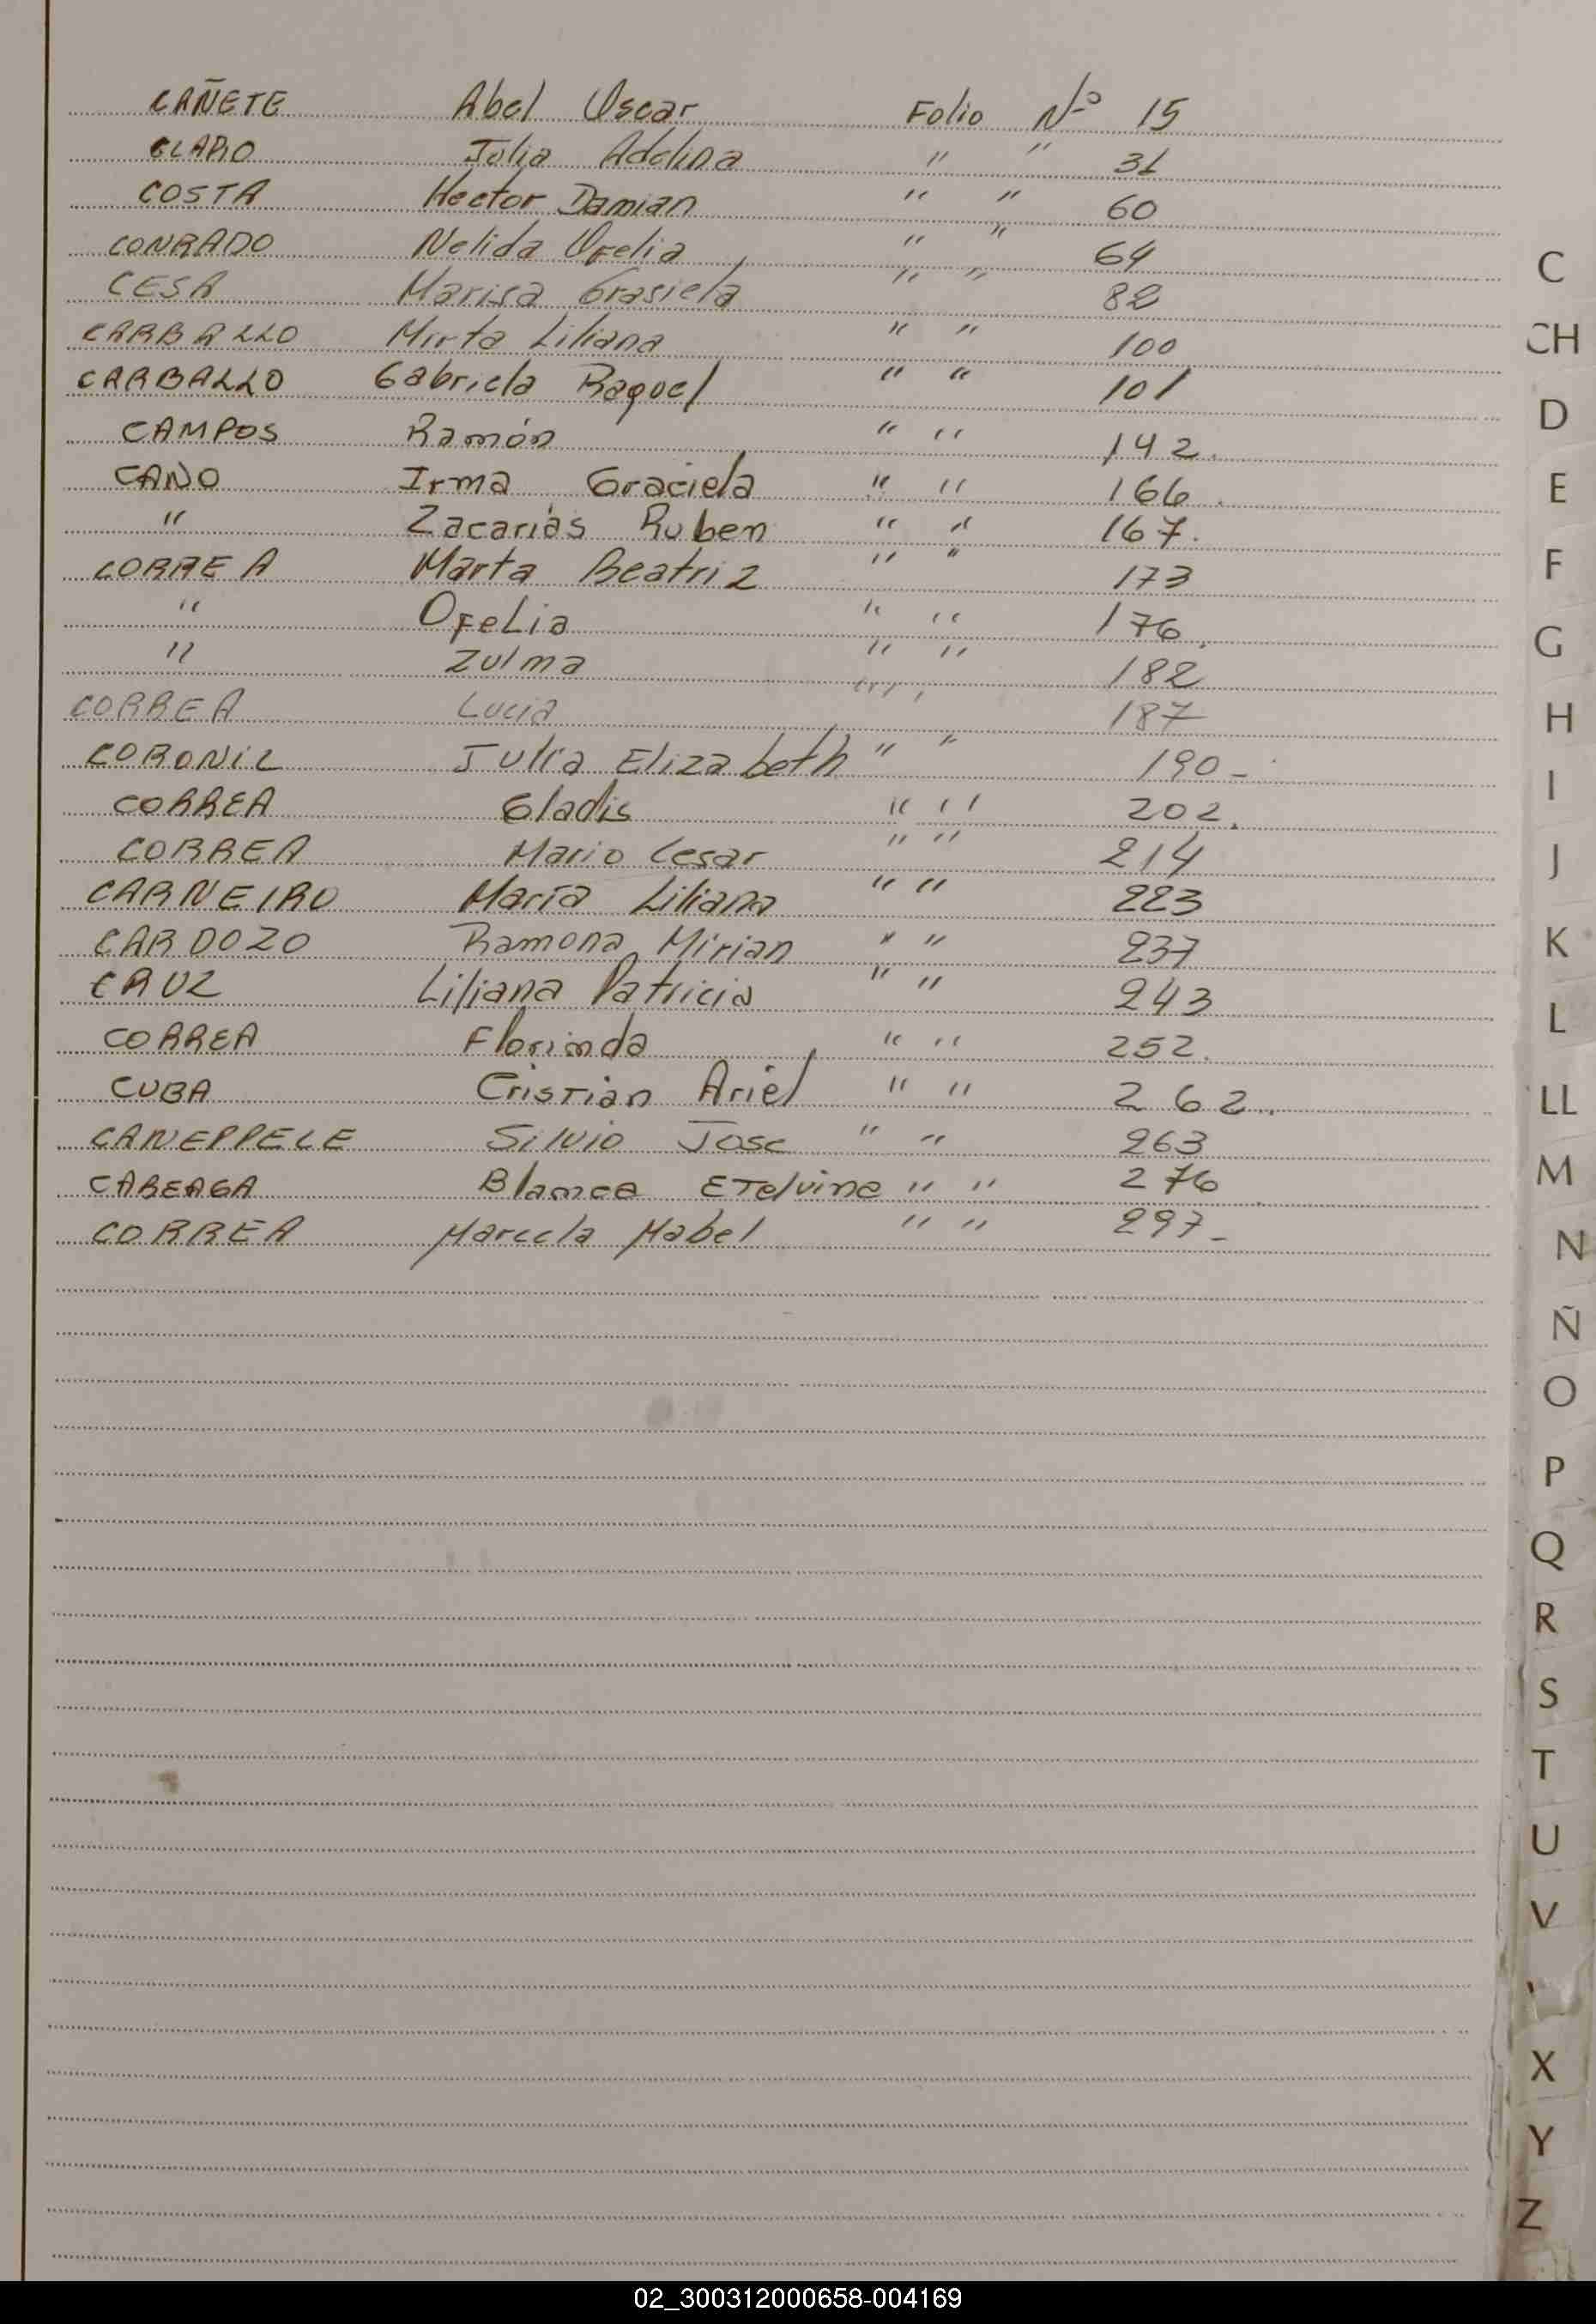 CAÑETE Abel Oscar Folio Nº 15
CLARO Julia Adelina " " 31
COSTA Hector Damian " " 60
CONRADO Nelida Ofelia " " 64
CESA Marisa Grasiela " " 82
CARBALLO Mirta Liliana " " 100
CARBALLO Gabriela Raquel " " 101
CAMPOS Ramón " " 142.
CANO Irma Graciela " " 166.
" Zacarías Ruben " " 167.
CORREA Marta Beatriz " " 173
" Ofelia " " 176.
" Zulma " " 182
CORREA Lucia " " 187
CORONIL Julia Elizabeth " " 190-
CORREA Gladis " " 202.
CORREA Mario Cesar " " 214
CARNEIRO María Liliana " " 223
CARDOZO Ramona Mirian " " 237
CRUZ Liliana Patricia " " 243
CORREA Florinda " " 252.
CUBA Cristian Ariel " " 262.
CANEPPELE Silvio Jose " " 263
CABEAGA Blanca Etelvina " " 276
CORREA Marcela Mabel " " 297-
C
CH
D
E
F
G
H
I
J
K
L
LL
M
N
Ñ
O
P
Q
R
S
T
U
V
X
Y
Z
02_300312000658-004169